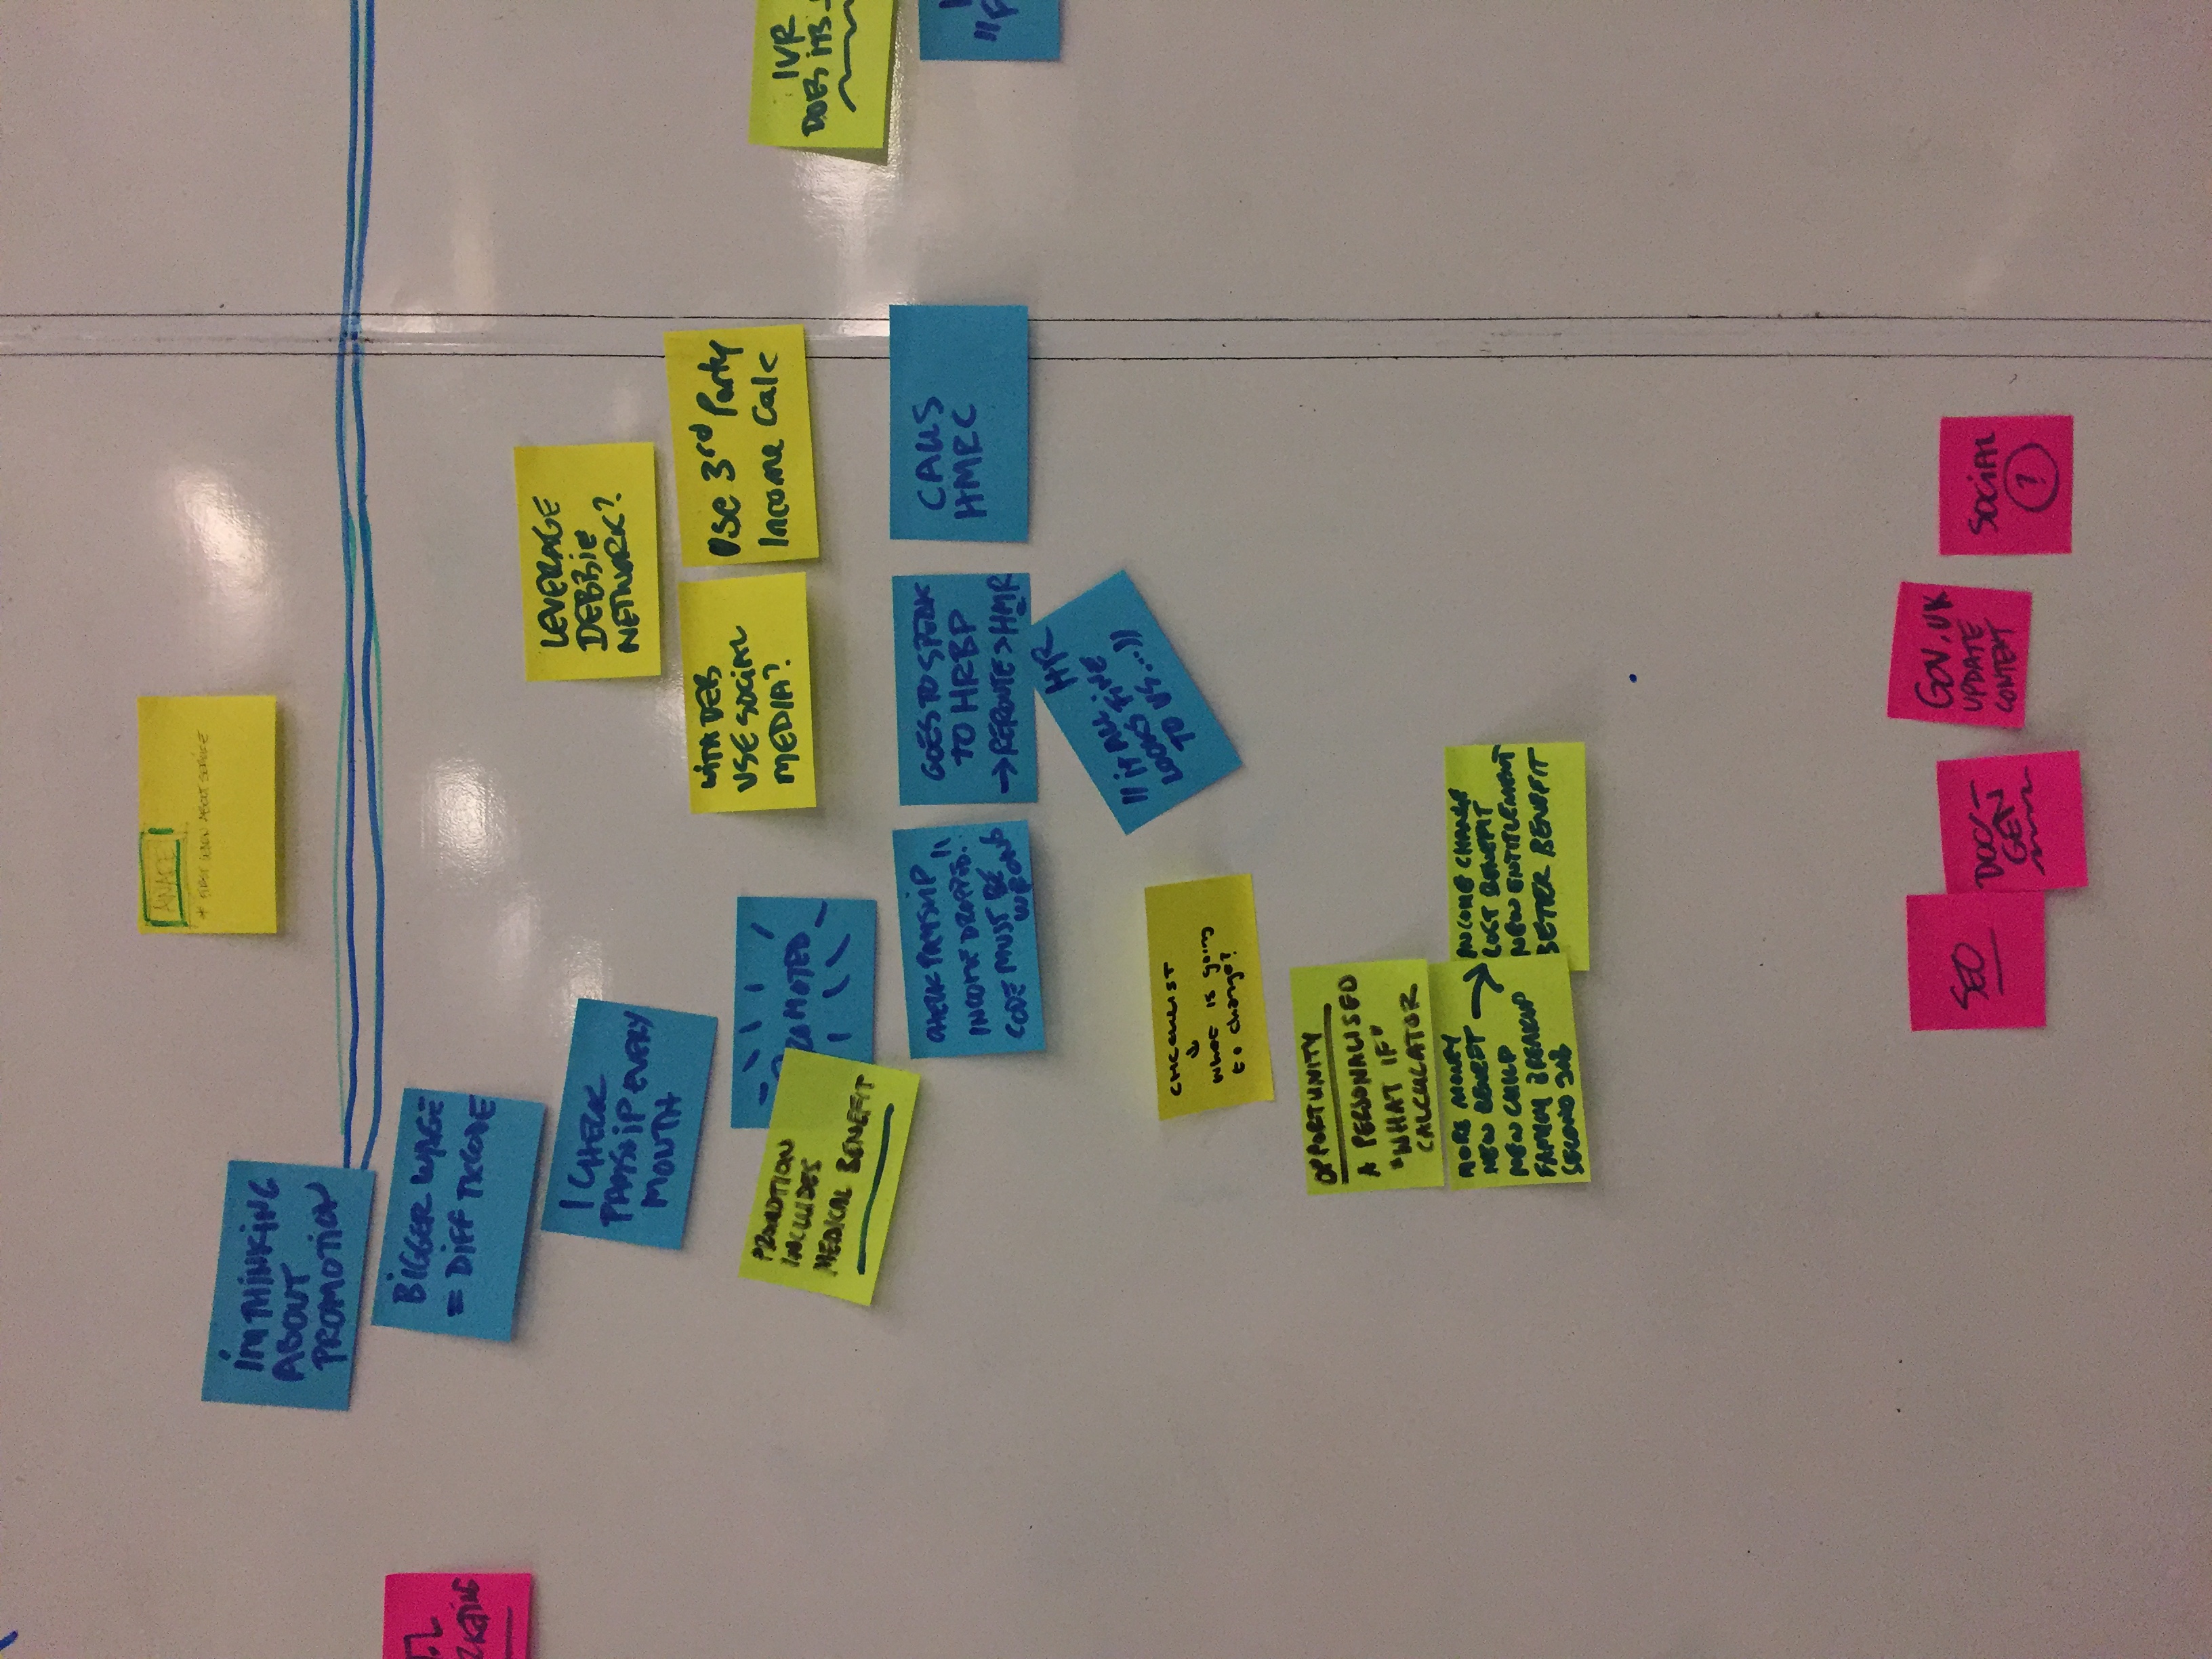 AWARE
* FIRST LEARN ABOUT SERVICE
I'M THINKING
ABOUT
PROMOTION
BIGGER WAGE
= DIFF TXCODE
I CHECK
PAYSLIP EVERY
MONTH
LEVERAGE
DEBBIE
NETWORK?
WITH DEB
USE SOCIAL
MEDIA?
Use 3rd Party
Income Calc
PROMOTION
INCLUDES
MEDICAL BENEFIT
OMOTED
IVR
DOES ITS
CHECK PAYSLIP
INCOME DROPPED!!
CODE MUST BE
WRONG
GOES TO SPEAK
TO HRBP
→ REROUTE > HMR
CALLS
HMRC
HR
"IT ALL
LOOKS FINE
TO US..."
CHECKLIST
↓
what is going
to change?
OPPORTUNITY
A PERSONALISED
"WHAT IF"
CALCULATOR
MORE MONEY
NEW BENEFIT →
NEW CHILD
FAMILY BREAKUP
SECOND JOB
INCOME CHANGE
LOST BENEFIT
NEW ENTITLEMENT
BETTER BENEFIT
SEO
DOC-
GEN
GOV.UK
UPDATE
CONTENT
SOCIAL
?